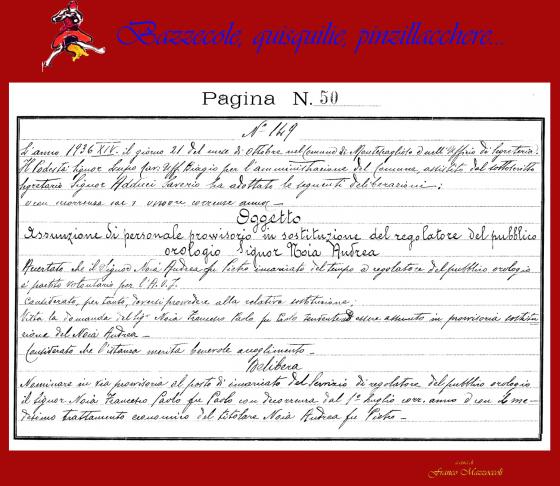 Bazzecole, quisquilie, pinzillacchere...
Pagina N. 50
N° 149
L'anno 1936 XIV. il giorno 21 del mese di Ottobre nel Comune di Montescaglioso e nell'Ufficio di Segreteria.
Il Podestà Signor Lupo Cav. Uff. Biagio per l'amministrazione del Comune, assistito dal sottoscritto
Segretario Signor Adduci Saverio ha adottato le seguenti deliberazioni:
Oggetto
Assunzione di personale provvisorio in sostituzione del regolatore del pubblico
orologio Signor Noia Andrea
Accertato che il Signor Noia Andrea fu Pietro incaricato del tempo a regolatore del pubblico orologio
è partito volontario per l'A.O.I.
Considerato, pertanto, doversi provvedere alla relativa sostituzione;
Vista la domanda del Sig. Noia Francesco Paolo fu Paolo tendente ad essere assunto in provvisoria sostitu-
zione del Noia Andrea -
Considerato che l'istanza merita benevole accoglimento -
Delibera
Nominare in via provvisoria al posto di incaricato del servizio di regolatore del pubblico orologio
il Signor Noia Francesco Paolo fu Paolo con decorrenza dal 1° luglio corr. anno e con lo me-
desimo trattamento economico del titolare Noia Andrea fu Pietro -
a cura di
Franco Mazzoccoli